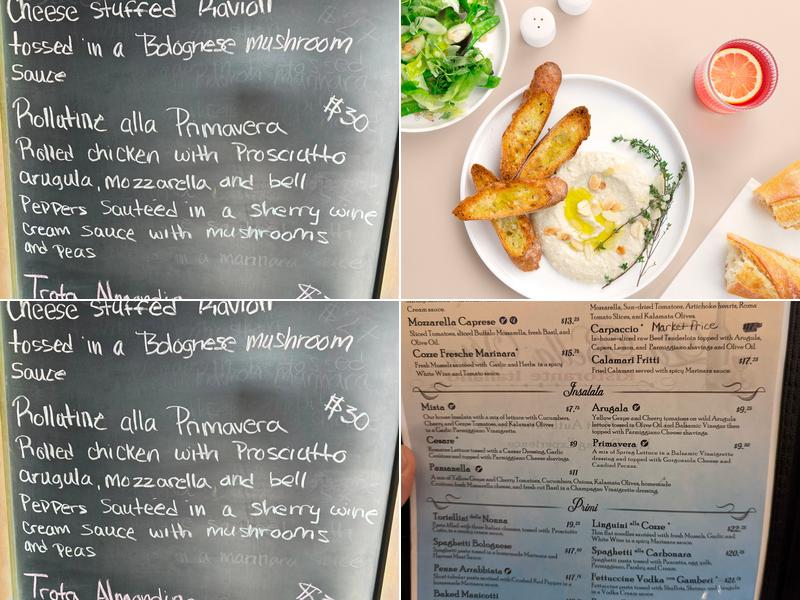 Cheese Stuffed Ravioli
tossed in a Bolognese mushroom
Sauce
$30
Rollatine alla Primavera
Rolled chicken with Prosciutto
arugula, mozzarella and bell
Peppers Sauteed in a sherry wine
cream sauce with mushrooms
and Peas
Trota
Cheese Stuffed Ravioli
tossed in a Bolognese mushroom
Sauce
$30
Rollatine alla Primavera
Rolled chicken with Prosciutto
arugula, mozzarella and bell
Peppers Sauteed in a sherry wine
cream sauce with mushrooms
and Peas
Trota
Cream sauce.
Mozzarella Caprese $13.25
Sliced Tomatoes, sliced Buffalo Mozzarella, fresh Basil, and
Olive Oil.
Cozze Fresche Marinara* $15.75
Fresh Mussels sauteed with Garlic and Herbs in a spicy
White Wine and Tomato sauce.
Mozzarella, Sun-dried Tomatoes, Artichoke hearts, Roma
Tomato Slices, and Kalamata Olives.
Carpaccio* Market Price
In-house-sliced raw Beef Tenderloin topped with Arugula,
Capers, Lemon, and Parmiggiano shavings and Olive Oil.
Calamari Fritti $17.25
Fried Calamari served with spicy Marinara sauce.
Insalata
Mista $7.75
Our house Insalata with a mix of lettuce with Cucumbers,
Cherry and Grape Tomatoes, and Kalamata Olives
in a Garlic Parmiggiano Vinaigrette.
Cesare* $9
Romaine Lettuce tossed with a Caesar Dressing, Garlic
Croutons and topped with Parmiggiano Cheese shavings.
Panzanella $11
A mix of Yellow Grape and Cherry Tomatoes, Cucumbers, Onions, Kalamata Olives, homemade
Croutons, fresh Mozzarella cheese, and fresh cut Basil in a Champagne Vinaigrette dressing.
Arugala $9.25
Yellow Grape and Cherry tomatoes on wild Arugula
lettuce tossed in Olive Oil and Balsamic Vinegar then
topped with Parmiggiano Cheese shavings.
Primavera
A mix of Spring Lettuce in a Balsamic Vinaigrette
dressing and topped with Gorgonzola Cheese and
Candied Pecans.
Primi
Tortellini della Nonna 19.25
Pasta filled with three Italian cheeses, tossed with Prosciutto
Spaghetti Bolognese
Spaghetti pasta tossed in a homemade Marinara and
Penne Arrabbiata
Short tubular pasta sauteed with Crushed Red Pepper in a
Baked Manicotti
Linguini alle Cozze*
Thin flat noodles sauteed with fresh Mussels, Garlic, and
White Wine in a spicy Marinara sauce.
Spaghetti alla Carbonara
Spaghetti pasta tossed with Pancetta, egg yolk,
Parmiggiano, Parsley and Cream.
Fettuccine Vodka con Gamberi*
Fettuccine pasta tossed with Shallots, Shrimp, and Arugula in
a Vodka Cream sauce.